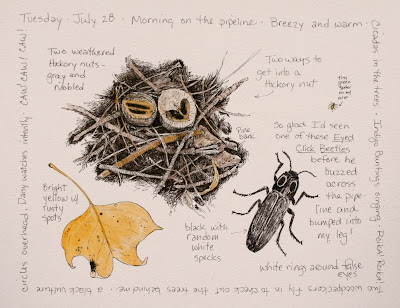 Tuesday · July 28 · Morning on the pipeline · Breezy and warm ·
Cicadas in the trees · Indigo Bunting singing · Peeka! Peeka!
Two woodpeckers fly in to check out the trees behind me · a black vulture
circles overhead. Daisy watches intently CAW! CAW! CAW!
Two weathered
Hickory nuts -
gray and
nibbled
Two ways to
get into a
Hickory nut
Pine
bark
So glad I'd seen
one of these Eyed
Click Beetles
before he
buzzed
across
the pipe-
line and
bumped into
my leg!
Bright
yellow w/
rusty
spots
black with
random
white
specks
white ring around false
eyes